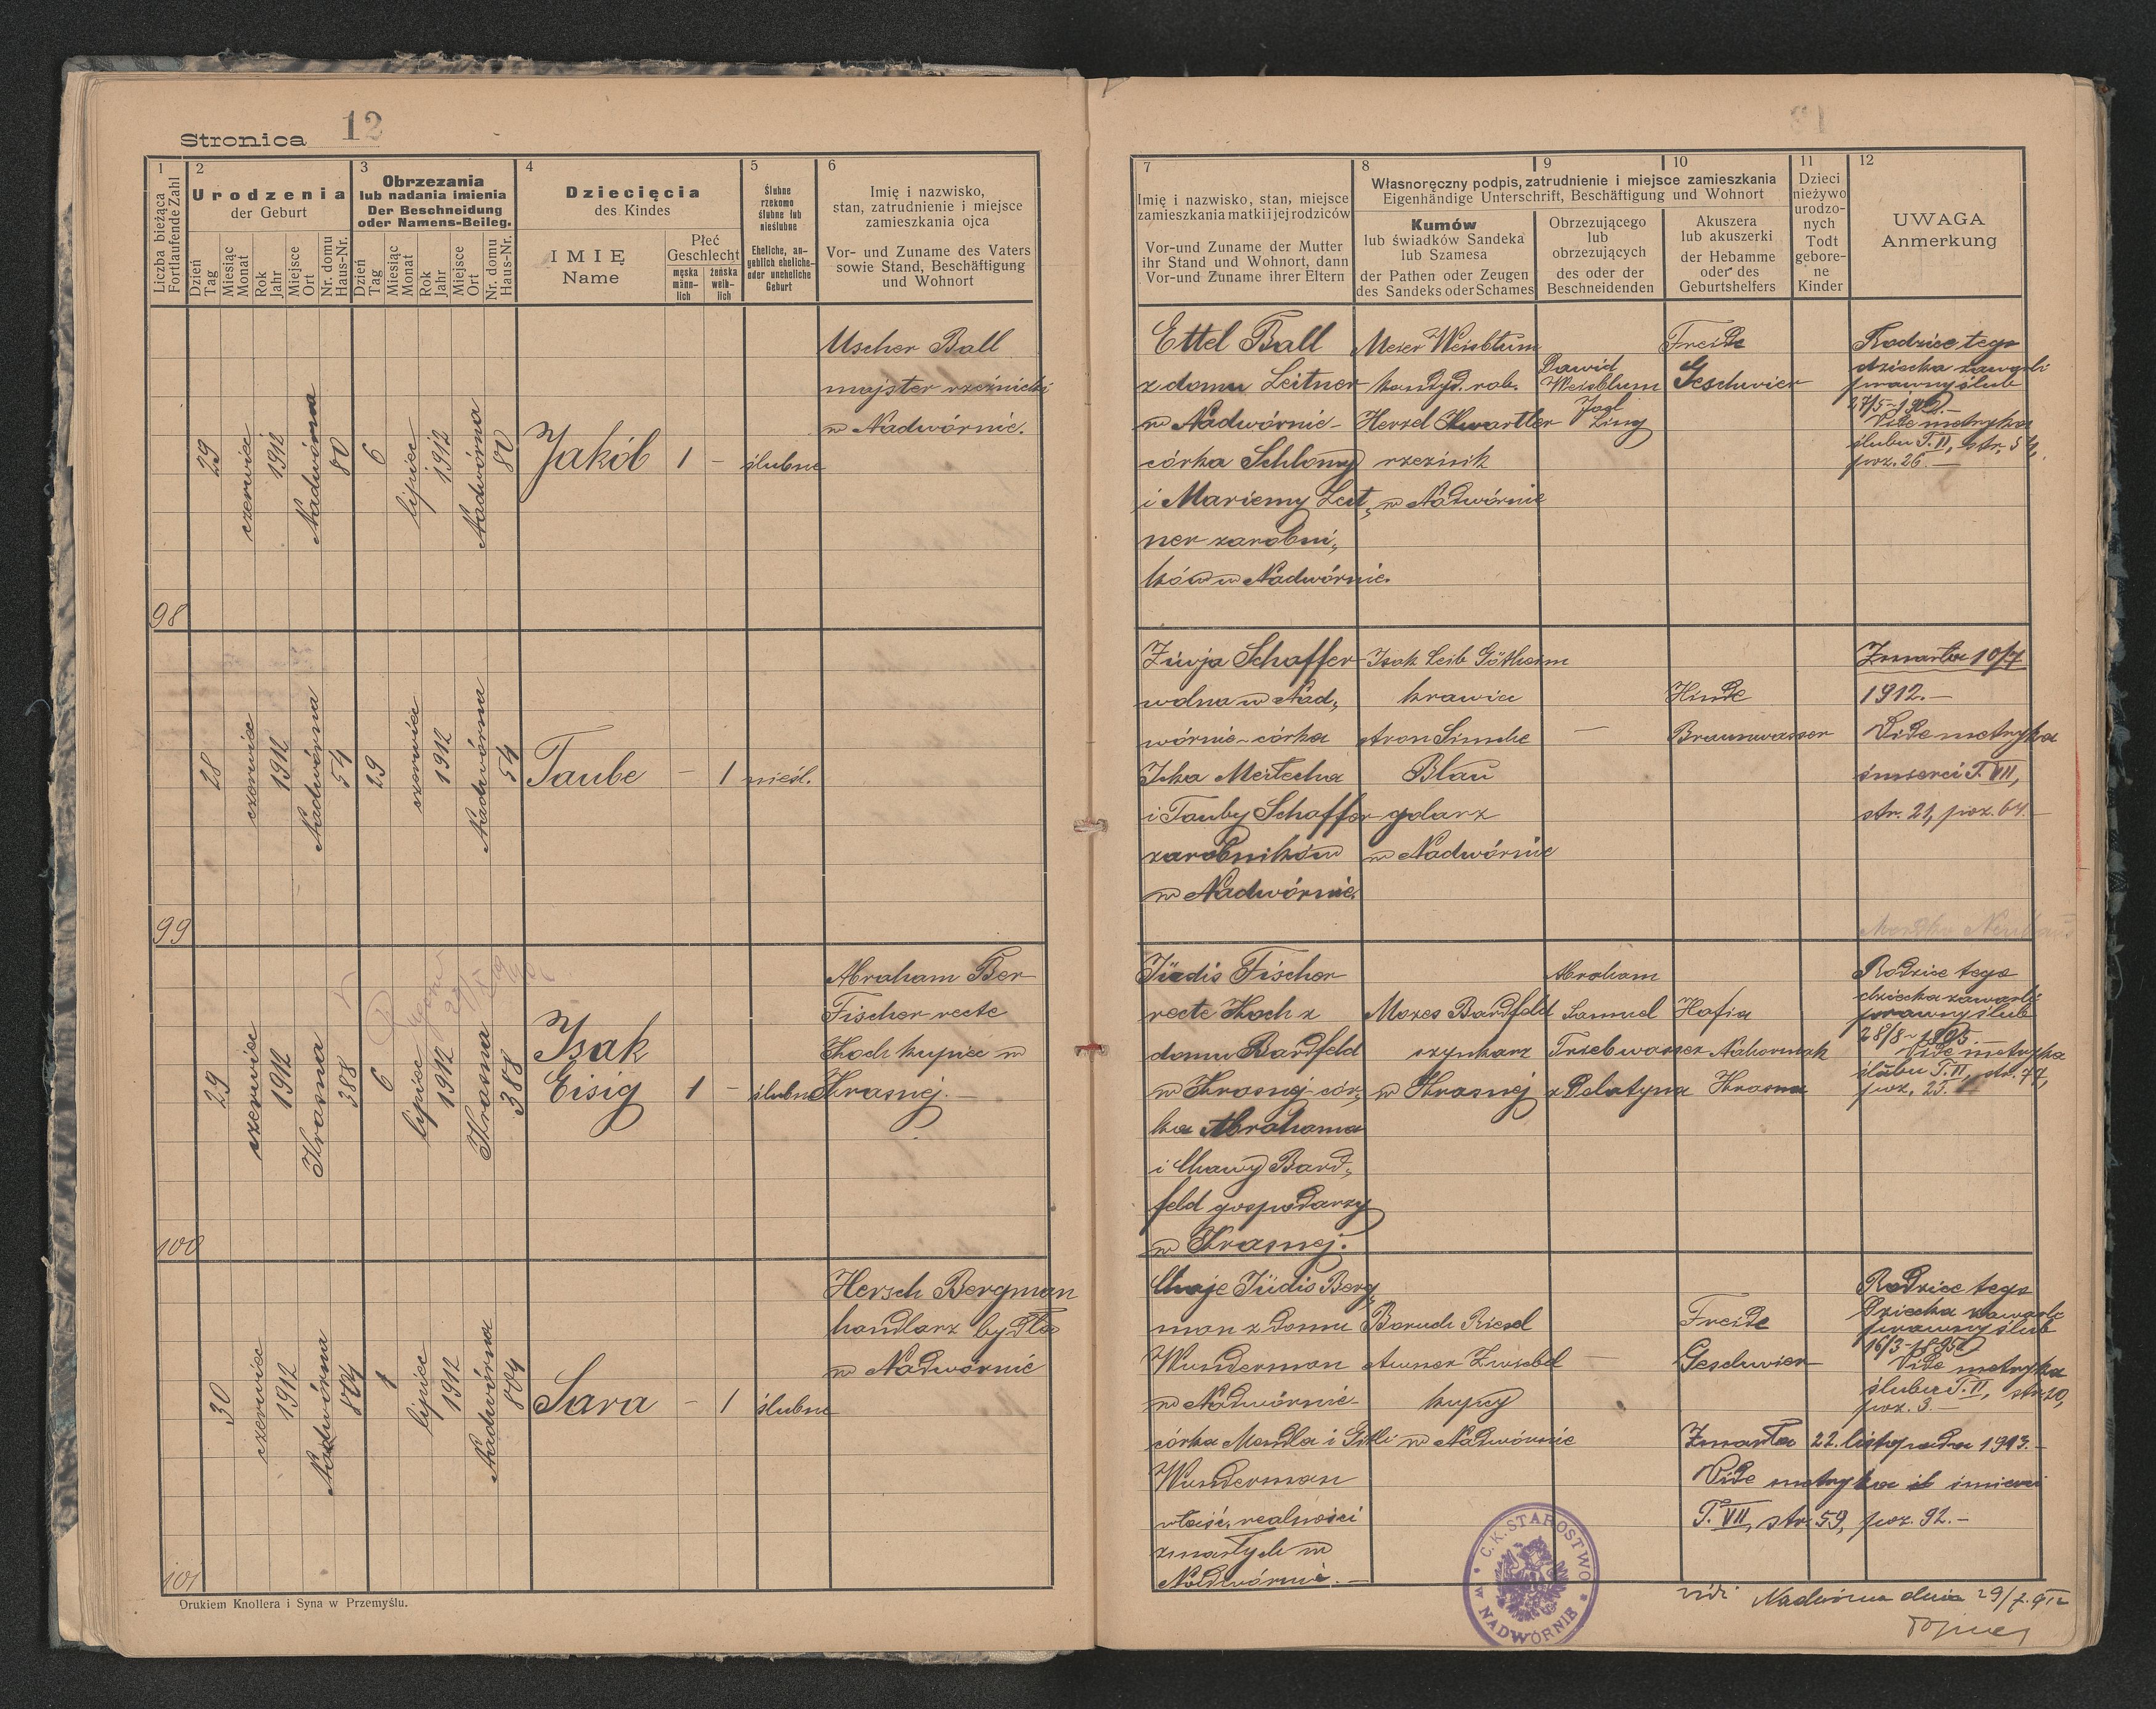 Stronica 12
1
Liczba bieżąca
Fortlaufende Zahl
2
Urodzenia
der Geburt
Dzień
Tag
Miesiąc
Monat
Rok
Jahr
Miejsce
Ort
Nr. domu
Haus-Nr.
3
Obrzezania
lub nadania imienia
Der Beschneidung
oder Namens-Beileg.
Dzień
Tag
Miesiąc
Monat
Rok
Jahr
Miejsce
Ort
Nr. domu
Haus-Nr.
4
Dziecięcia
des Kindes
IMIĘ
Name
Płeć
Geschlecht
męska
männ-
lich
żeńska
weib-
lich
5
Ślubne
rzekomo
ślubne lub
nieślubne
Eheliche, an-
geblich eheliche-
oder uneheliche
Geburt
6
Imię i nazwisko,
stan, zatrudnienie i miejsce
zamieszkania ojca
Vor- und Zuname des Vaters
sowie Stand, Beschäftigung
und Wohnort
7
Imię i nazwisko, stan, miejsce
zamieszkania matki i jej rodziców
Vor-und Zuname der Mutter
ihr Stand und Wohnort, dann
Vor-und Zuname ihrer Eltern
8
9
10
Własnoręczny podpis, zatrudnienie i miejsce zamieszkania
Eigenhändige Unterschrift, Beschäftigung und Wohnort
Kumów
lub świadków Sandeka
lub Szamesa
der Pathen oder Zeugen
des Sandeks oder Schames
Obrzezującego
lub
obrzezujących
des oder der
Beschneidenden
Akuszera
lub akuszerki
der Hebamme
oder des
Geburtshelfers
11
Dzieci
nieżywo
urodzo-
nych
Todt
gebore-
ne
Kinder
12
UWAGA
Anmerkung
98
29
czerwiec
1912
Nadwórna
80
6
lipiec
1912
Nadwórna
80
Jakób
1
-
ślubne
Uscher Ball
majster rzeźnicki
w Nadwórnie.
Ettel Ball
z domu Leitner
w Nadwórnie -
córka Schlomy
i Mariemy Leit„
ner zarobni„
ków w Nadwórnie.
Meier Weisblum
kandyd. rab.
Herzel Kwartler
rzeźnik
w Nadwórnie
Dawid
Weisblum
Ling
Freide
Geschwier
Rodzice tego
dziecka zawarli
prawny ślub
Vide metryka
ślubu T. II, str. 54,
poz. 26. -
99
28
czerwiec
1912
Nadwórna
54
29
czerwiec
1912
Nadwórna
54
Taube
-
1
nieśl.
Ziwja Schaffer
wolna w Nad„
wórnie - córka
Icka Meilecha
i Tauby Schaffer
zarobników
w Nadwórnie.
Isak Leib Götheim
krawiec
Aron Simche
Blau
golarz
w Nadwórnie
-
Hinde
Braunwasser
Zmarła 10/7
1912. -
Vide metryka
śmierci T. VII,
str. 21, poz. 64. -
100
29
czerwiec
1912
Krasna
388
6
lipiec
1912
Krasna
388
Izak
Eisig
1
-
ślubne
Abraham Ber
Fischer recte
Koch kupiec w
Krasnej. -
Jüdis Fischer
recte Koch z
domu Bardfeld
w Krasnej - cór„
ka Abrahama
i Chawy Bard„
feld gospodarzy
w Krasnej.
Mozes Bardfeld
szynkarz
w Krasnej
Abraham
Samuel
Trzebwasser
z Delatyna
Hafia
Nahorniak
Krasna
Rodzice tego
dziecka zawarli
prawny ślub
28/8 - 1905.
Vide metryka
ślubu T. II, str. 77,
poz. 25.
101
30
czerwiec
1912
Nadwórna
804
1
lipiec
1912
Nadwórna
804
Sara
-
1
ślubne
Hersch Bergman
handlarz bydła
w Nadwórnie
Chaje Jüdis Berg„
man z domu
Wunderman
w Nadwórnie -
córka Mendla i Gitli
Wunderman
właśc. realności
zmarłych w
Nadwórnie. -
Baruch Riesel
Awner Zwiebel
kupcy
w Nadwórnie
-
Freide
Geschwier
Rodzice tego
dziecka zawarli
prawny ślub
16/3 - 1895
Vide metryka
ślubu T. II, str. 20,
poz. 3. -
Zmarła 22. listopada 1913. -
Vide metryka śmierci
T. VII, str. 59, poz. 92. -
C. K. STAROSTWO
W NADWÓRNIE
vidi Nadwórna dnia 29/7. 912
Drukiem Knollera i Syna w Przemyślu.